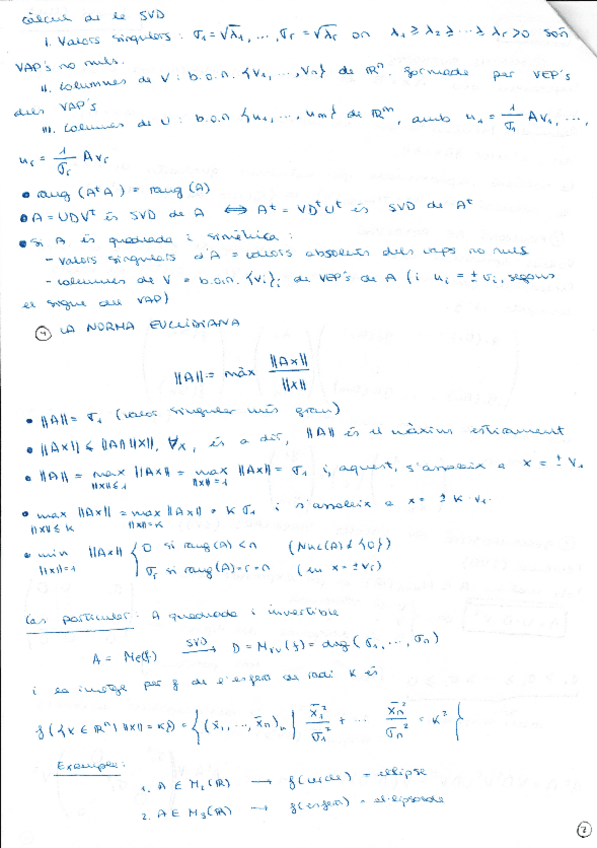 Càlcul de la SVD
I. Valors singulars: σ₁=√λ₁, ..., σr=√λr on λ₁ ≥ λ₂ ≥ ... ≥ λr > 0 són
VAP's no nuls.
II. Columnes de V: b.o.n. {v₁, ..., vn} de ℝⁿ. formada per VEP's
dels VAP's
III. Columnes de U: b.o.n {u₁, ..., um} de ℝᵐ, amb u₁ = 1/σ₁ Av₁, ...,
ur = 1/σr Avr
• rang (AᵗA) = rang(A)
• A = UDVᵗ és SVD de A ⟺ Aᵗ = VDᵗUᵗ és SVD de Aᵗ
• Si A és quadrada i simètrica:
- valors singulars d'A = valors absoluts dels vaps no nuls
- columnes de V = b.o.n. {vi}i de VEP's de A (i ui = ± vi, segons
el signe del VAP)
④ LA NORMA EUCLIDIANA
||A|| = màx ||Ax|| / ||x||
• ||A|| = σ₁ (valor singular més gran)
• ||Ax|| ≤ ||A|| ||x||, ∀x, és a dir, ||A|| és el màxim estirament
• ||A|| = max ||x||≤1 ||Ax|| = max ||x||=1 ||Ax|| = σ₁ i, aquest, s'assoleix a x = ± v₁
• max ||x||≤K ||Ax|| = max ||x||=K ||Ax|| = K σ₁ i s'assoleix a x = ± K · v₁.
• min ||x||=1 ||Ax|| { 0 si rang(A) < n (Nuc(A) ≠ {0})
σr si rang(A) = r = n (en x = ± vr)
Cas particular: A quadrada i invertible
A = Me(f) SVD → D = Mvu(f) = diag(σ₁, ..., σn)
i la imatge per f de l'esfera de radi K és
f({x ∈ ℝⁿ | ||x|| = K}) = {(x̄₁, ..., x̄n)u | x̄₁²/σ₁² + ... x̄n²/σn² = K²}
Exemple:
1. A ∈ M₂(ℝ) → f(cercle) = el·lipse
2. A ∈ M₃(ℝ) → f(esfera) = el·lipsoide
2